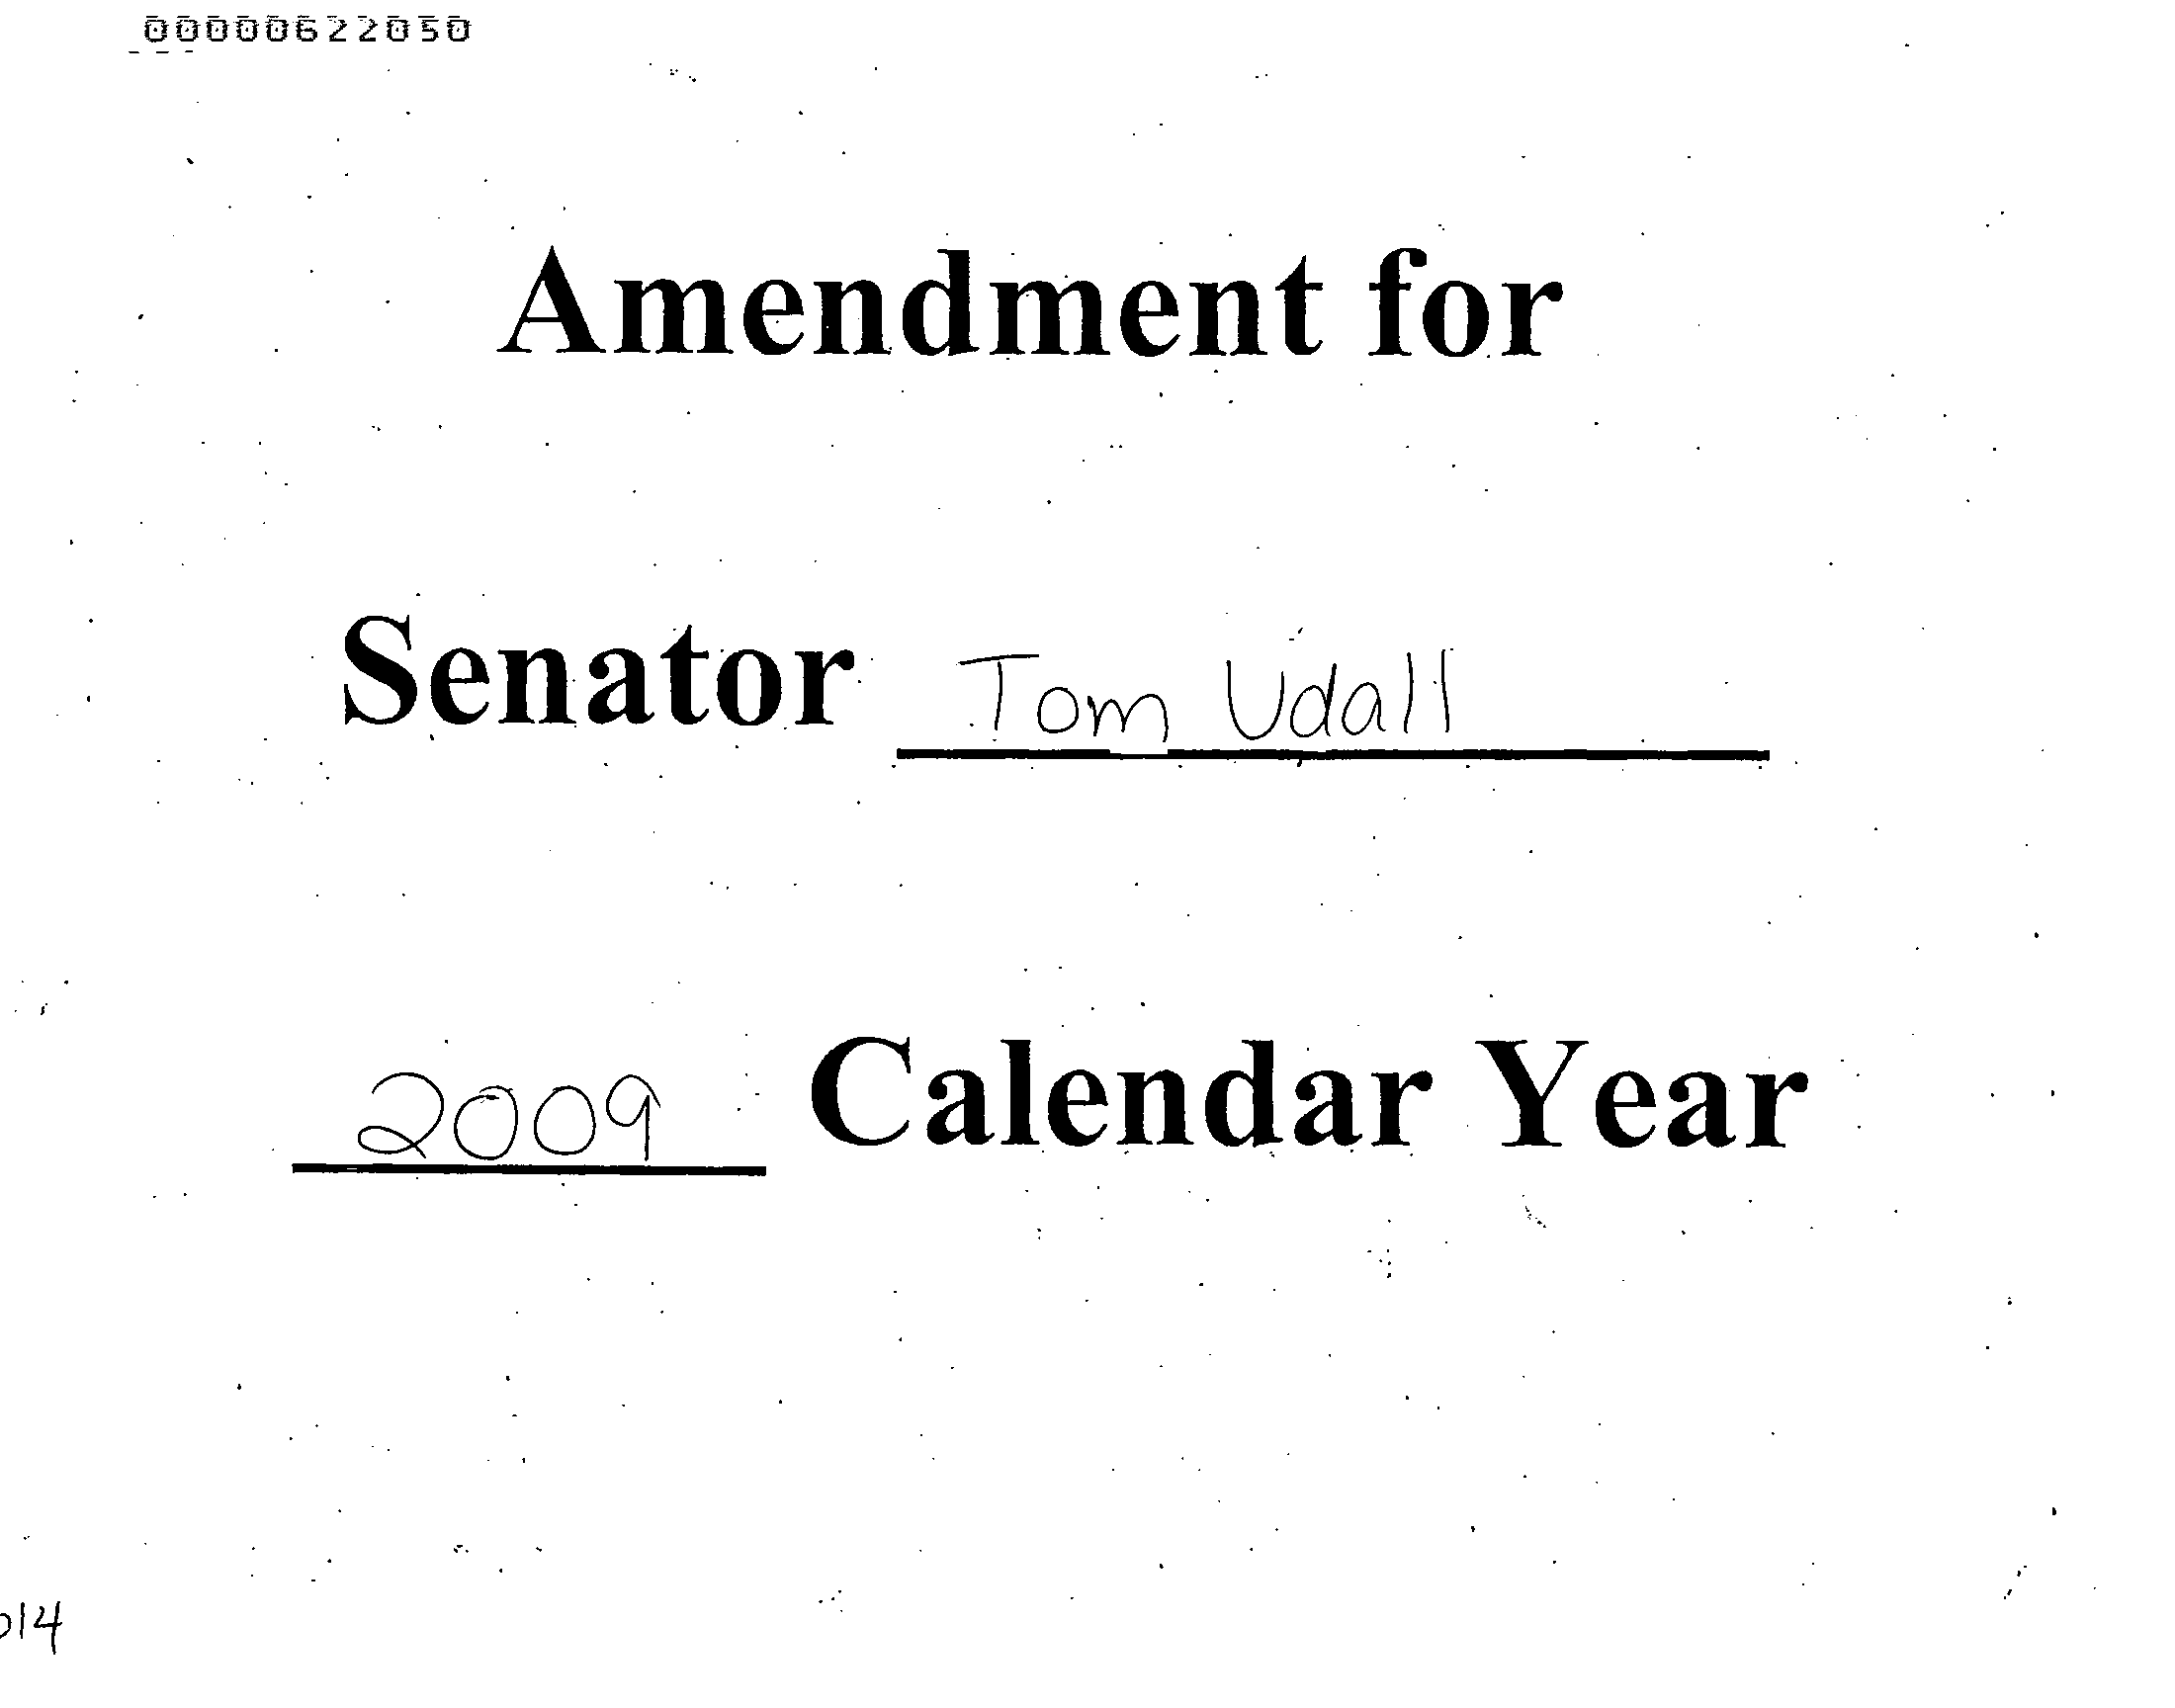 00000622050
Amendment for
Senator Tom Udall
2009 Calendar Year
014